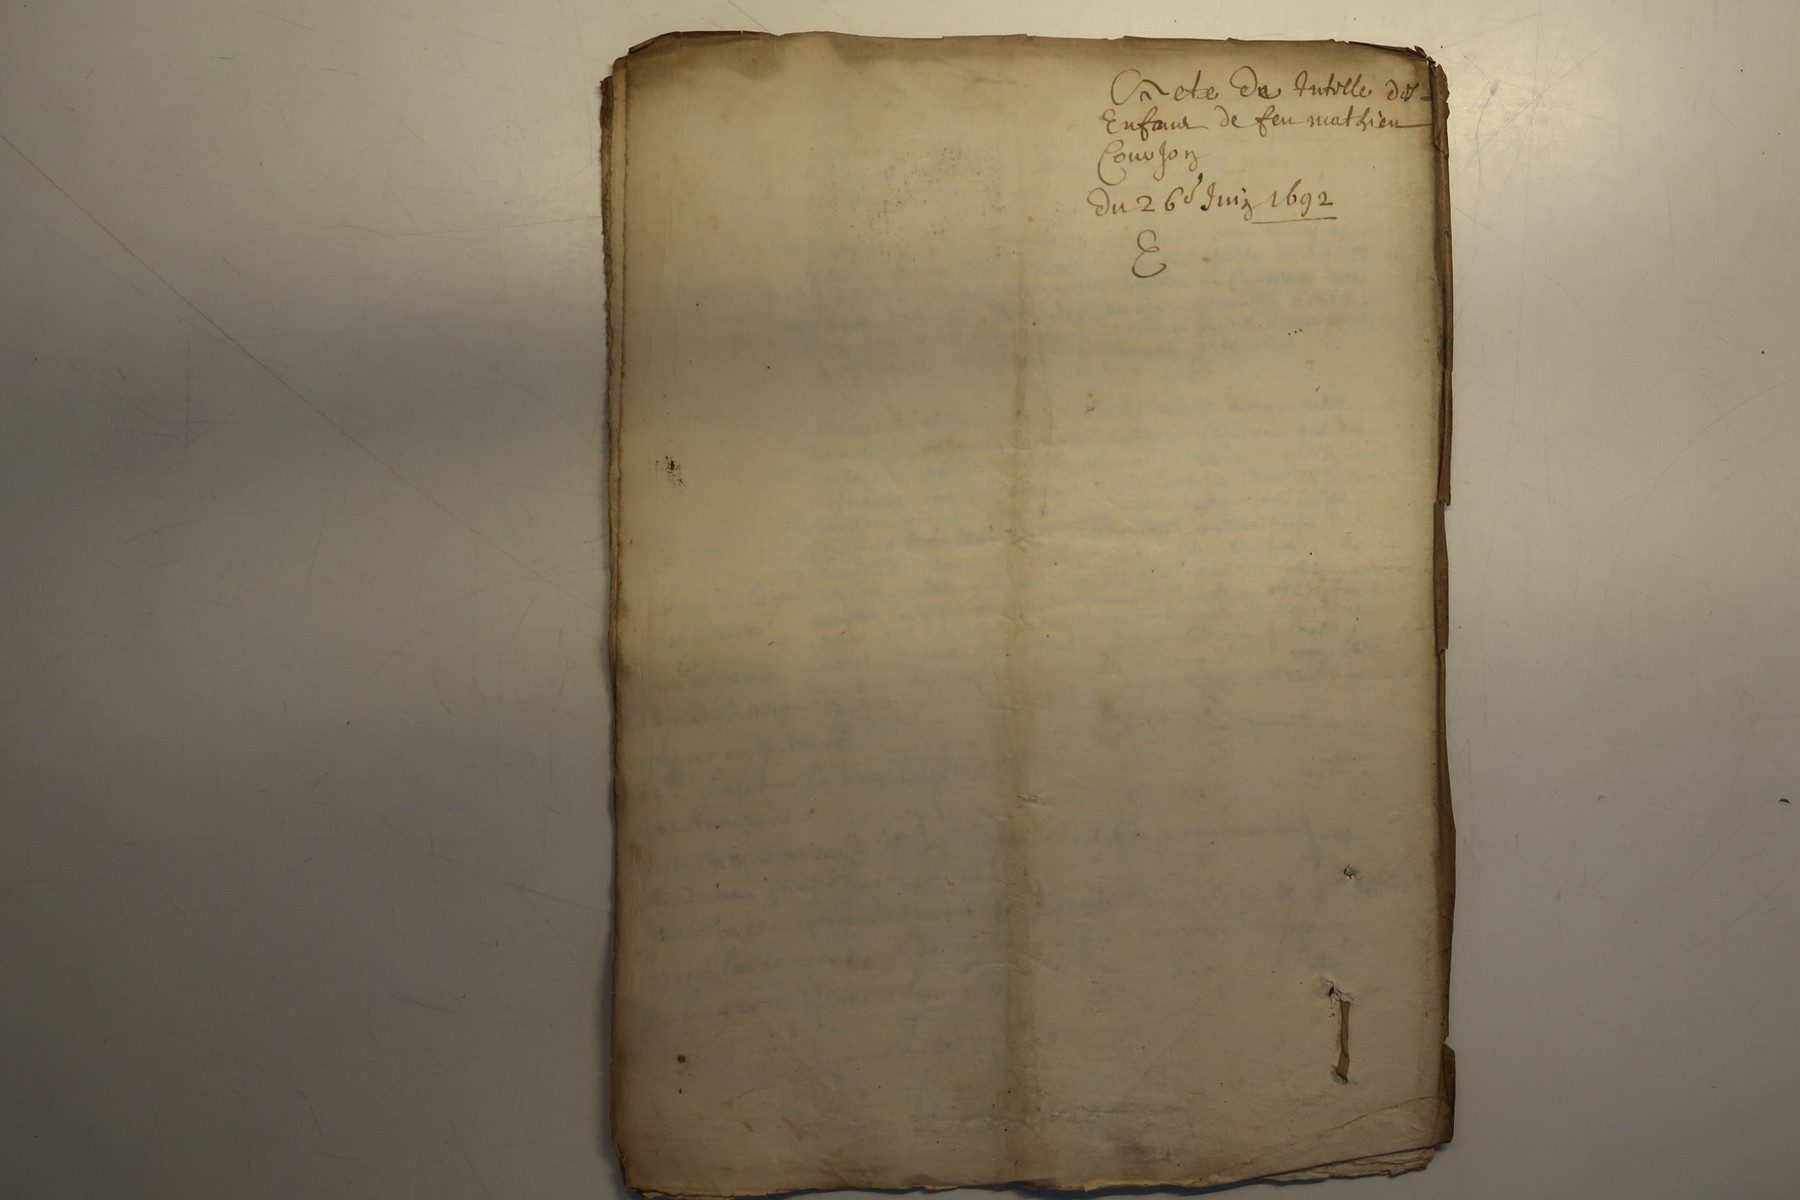 Acte De tutelle des
Enfans de feu mathieu
Courjon
Du 26e Juin 1692
E